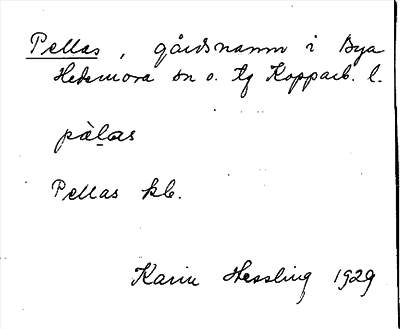 Pellas, gårdsnamn i Bya
Hedemora sn o. tg Kopparb. l.
pàlas
Pellas kb.
Karin Hessling 1929